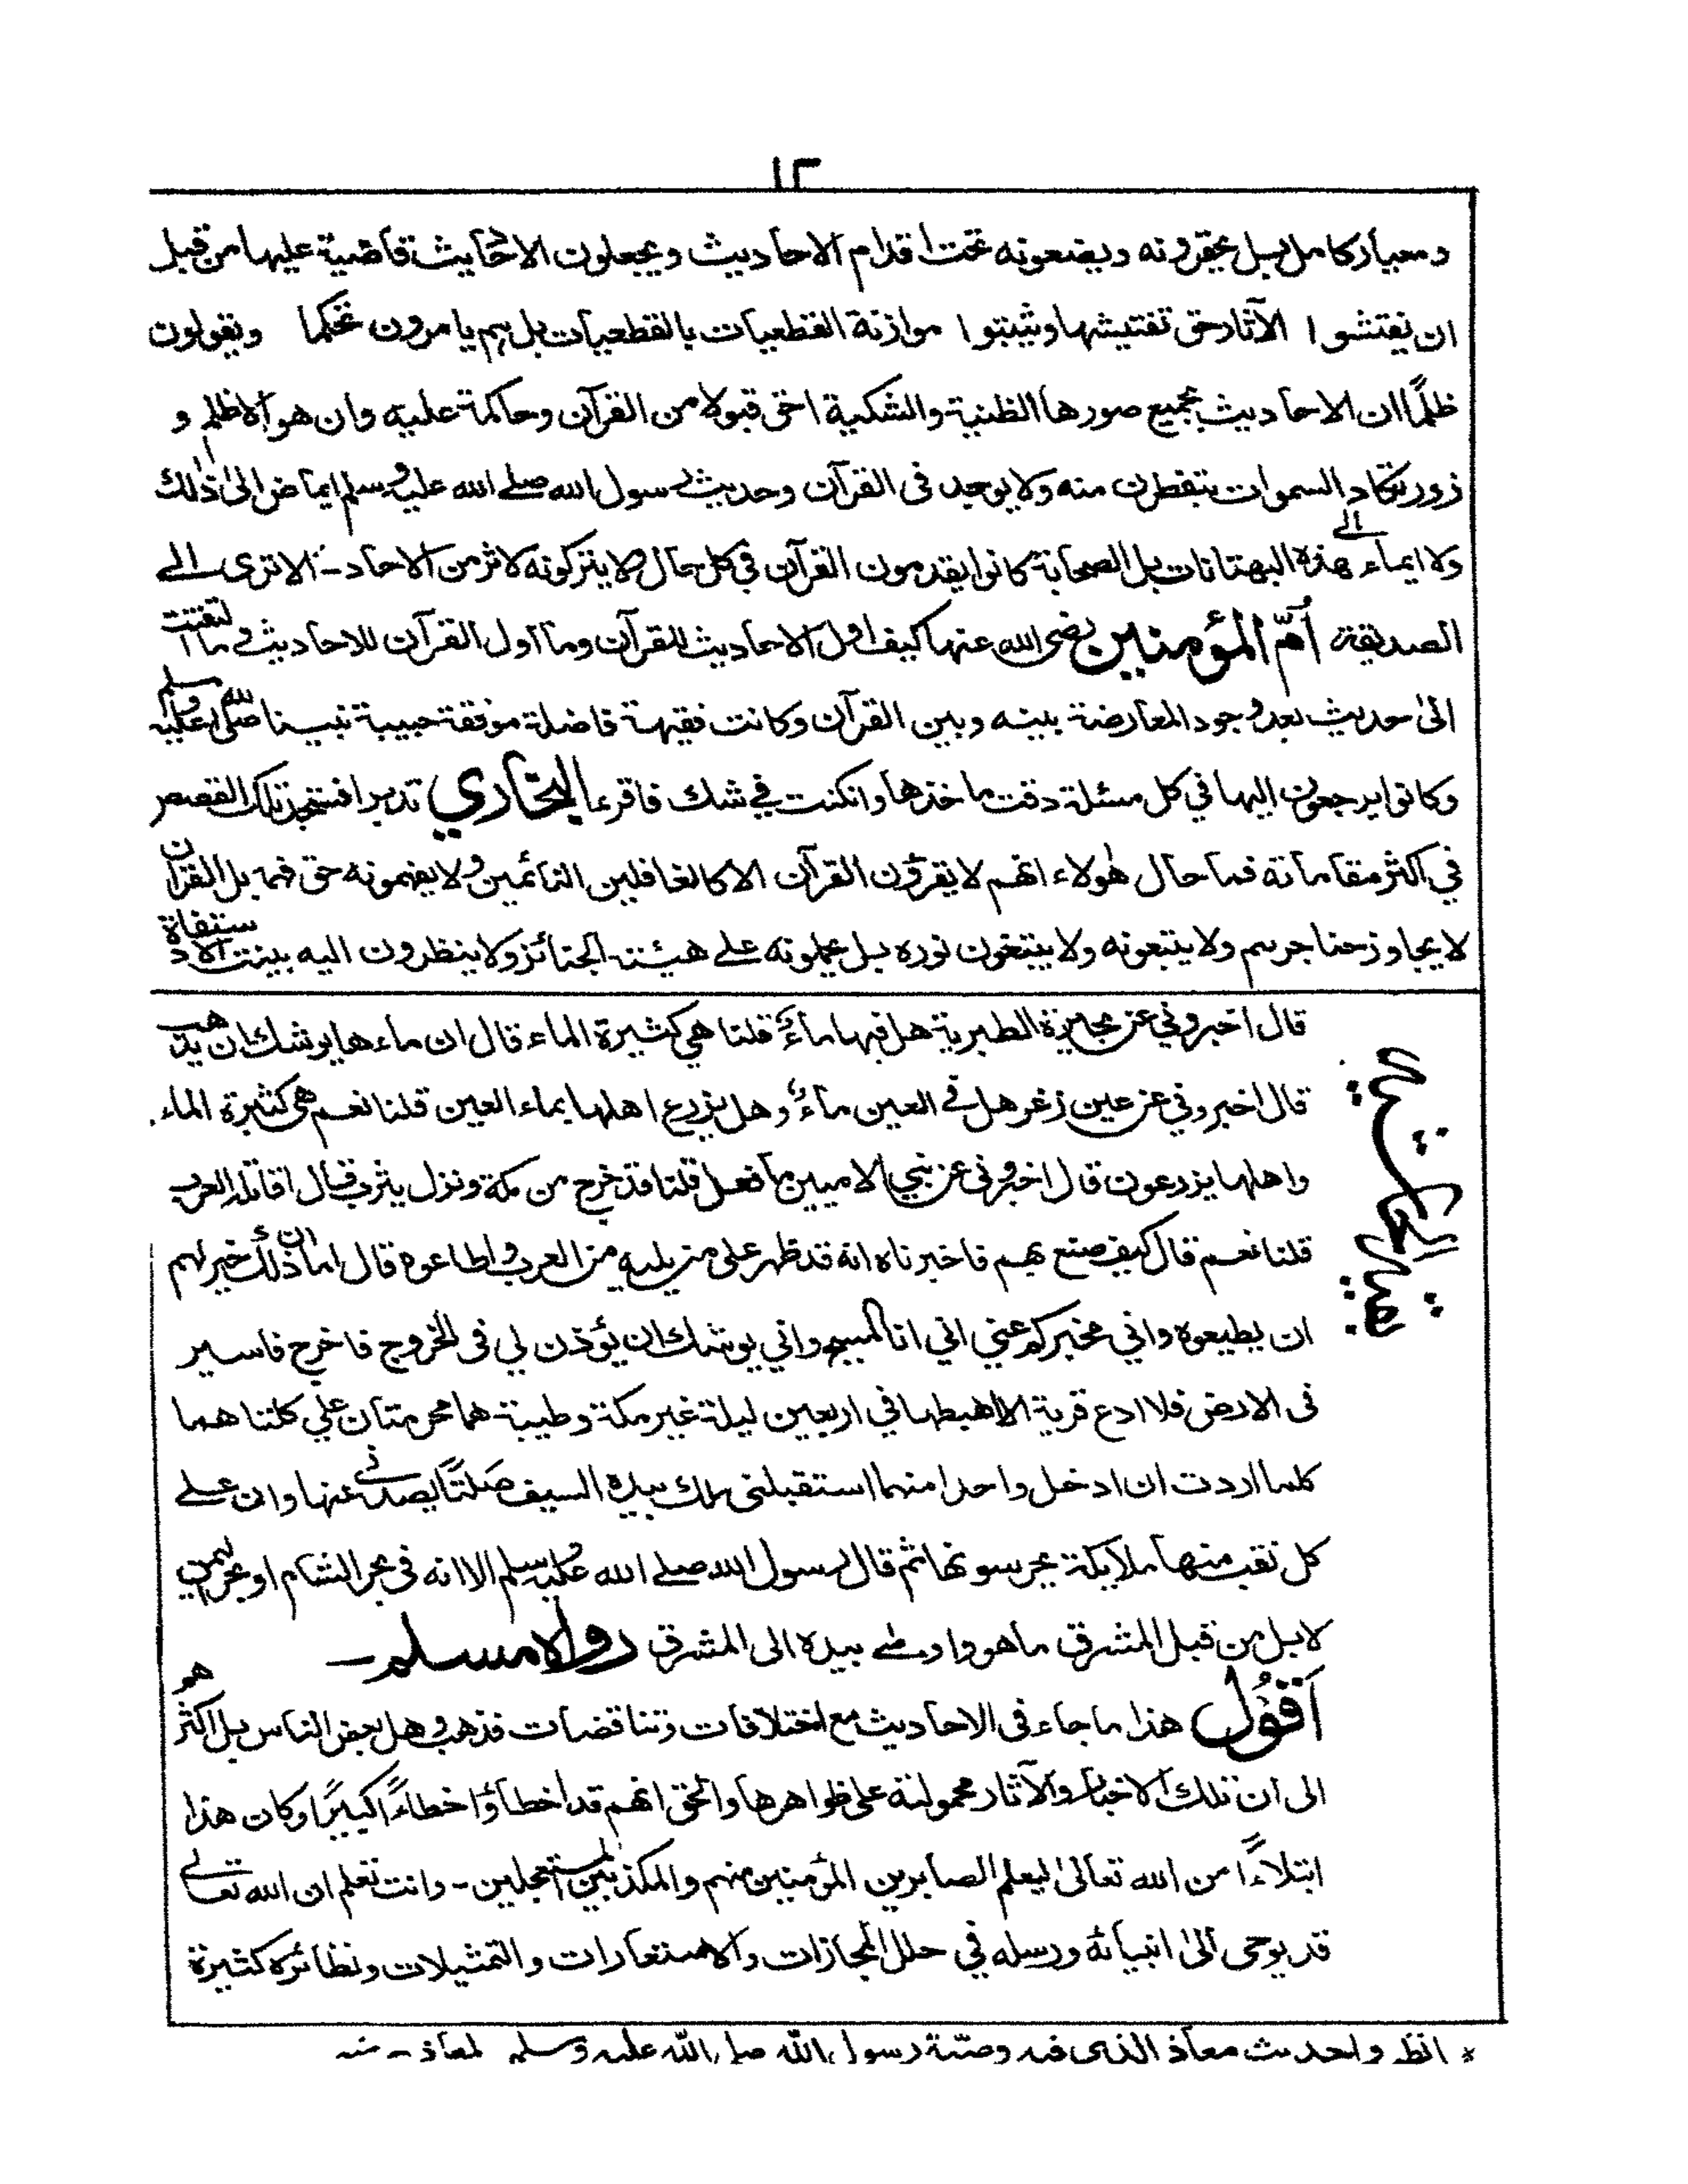 ١٢
ومعيار كامل بل يحقرونه ويضعونه تحت اقدام الاحاديث ويجعلون الاحاديث قاضية عليها من قبل
ان يفتشوا الآثار حق تفتيشها ويثبتوا موازنة القطعيات بالقطعيات بل هم يامرون تحكما ويقولون
ظلمًا ان الاحاديث بجميع صورها الظنية والشكية احق قبولا من القرآن وحاكمة عليه وان هو الا ظلم و
زور تكاد السموات يتفطرن منه ولا يوجد فى القرآن وحديث رسول الله صلے الله عليه وسلم ايماض الىٰ ذٰلك
ولا ايماء الے هذه البهتانات بل الصحابة كانوا يقدمون القرآن في كل حال ولا يتركونه لاثر من الاحاد - الا ترى الے
الصديقة أمّ المؤمنين رضى الله عنها كيف اول الاحاديث للقرآن وما اول القرآن للاحاديث وما التفتت
الىٰ حديث بعد وجود المعارضة بينه وبين القرآن وكانت فقيهة فاضلة موفقة حبيبة نبينا صلى الله عليه وسلم
وكانوا يرجعون اليها في كل مسئلة دقت ماخذها وان كنت في شك فاقرء البخاري تدبرا فستجد تلك القصص
في اكثر مقاماته فما حال هٰولاء انهم لا يقرؤن القرآن الا كالغافلين النائمين ولا يفهمونه حق فهمه بل القرآن
لا يجاوز حناجرهم ولا يتبعونه ولا يبتغون نوره بل يحملونه علے هيئت الجنائز ولا ينظرون اليه بنيت الاستفادة
بقية الحاشية
قال اخبروني عن بحيرة الطبرية هل فيها ماءٌ قلنا هي كثيرة الماء قال ان ماءها يوشك ان يذهب
قال اخبروني عن عين زغر هل في العين ماءٌ وهل يزرع اهلها بماء العين قلنا نعم هي كثيرة الماء
واهلها يزرعون قال اخبروني عن نبي الاميين ما فعل قلنا قد خرج من مكة ونزل يثرب قال اقاتله العرب
قلنا نعم قال كيف صنع بهم فاخبرناه انه قد ظهر على من يليه من العرب واطاعوه قال اما ان ذٰلك خير لهم
ان يطيعوه واني مخبركم عني اني انا المسيح واني يوشك ان يؤذن لي فى الخروج فاخرج فاسير
فى الارض فلا ادع قرية الا هبطها في اربعين ليلة غير مكة وطيبة هما محرمتان علي كلتاهما
كلما اردت ان ادخل واحدا منهما استقبلنى ملك بيده السيف صَلتًا يصدنے عنها وان علے
كل نقب منها ملايكة يحرسونها ثم قال رسول الله صلے الله عليه وسلم الا انه فى بحر الشام او بحر اليمن
لا بل من قبل المشرق ما هو واومےٰ بيده الى المشرق رواه مسلم –
اَقُوْل هذا ما جاء فى الاحاديث مع اختلافات وتناقضات فذهب وهل بعض الناس بل اكثرهم
الى ان تلك الاخبار والآثار محمولة على ظواهرها والحق انهم قد اخطأوا خطاءً كبيرًا وكان هذا
ابتلاءً من الله تعالىٰ ليعلم الصابرين المؤمنين منهم والمكذبين المستعجلين - وانت تعلم ان الله تعالے
قد يوحى الىٰ انبيائه ورسله في حلل المجازات والاستعارات والتمثيلات ونظائره كثيرة
* انظروا حديث معاذ الذى فيه وصيّة رسول الله صلى الله عليه وسلم لمعاذ - منه